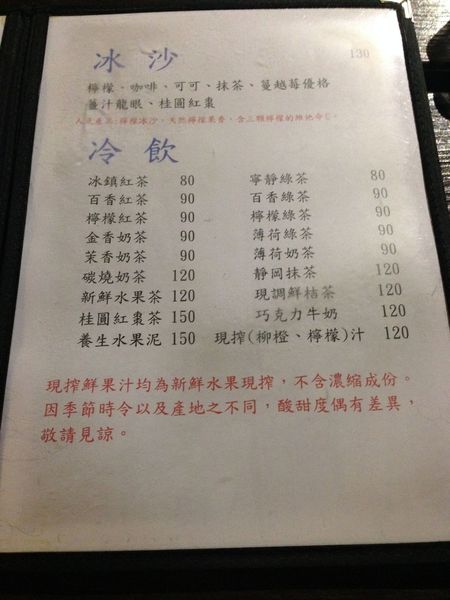 冰沙 130
檸檬、咖啡、可可、抹茶、蔓越莓優格
薑汁龍眼、桂圓紅棗
人氣產品:檸檬冰沙，天然檸檬果香，含三顆檸檬的維他命C。
冷飲
冰鎮紅茶 80 寧靜綠茶 80
百香紅茶 90 百香綠茶 90
檸檬紅茶 90 檸檬綠茶 90
金香奶茶 90 薄荷綠茶 90
茉香奶茶 90 薄荷奶茶 90
碳燒奶茶 120 靜岡抹茶 120
新鮮水果茶 120 現調鮮桔茶 120
桂圓紅棗茶 150 巧克力牛奶 120
養生水果泥 150 現搾(柳橙、檸檬)汁 120
現搾鮮果汁均為新鮮水果現搾，不含濃縮成份。
因季節時令以及產地之不同，酸甜度偶有差異，
敬請見諒。